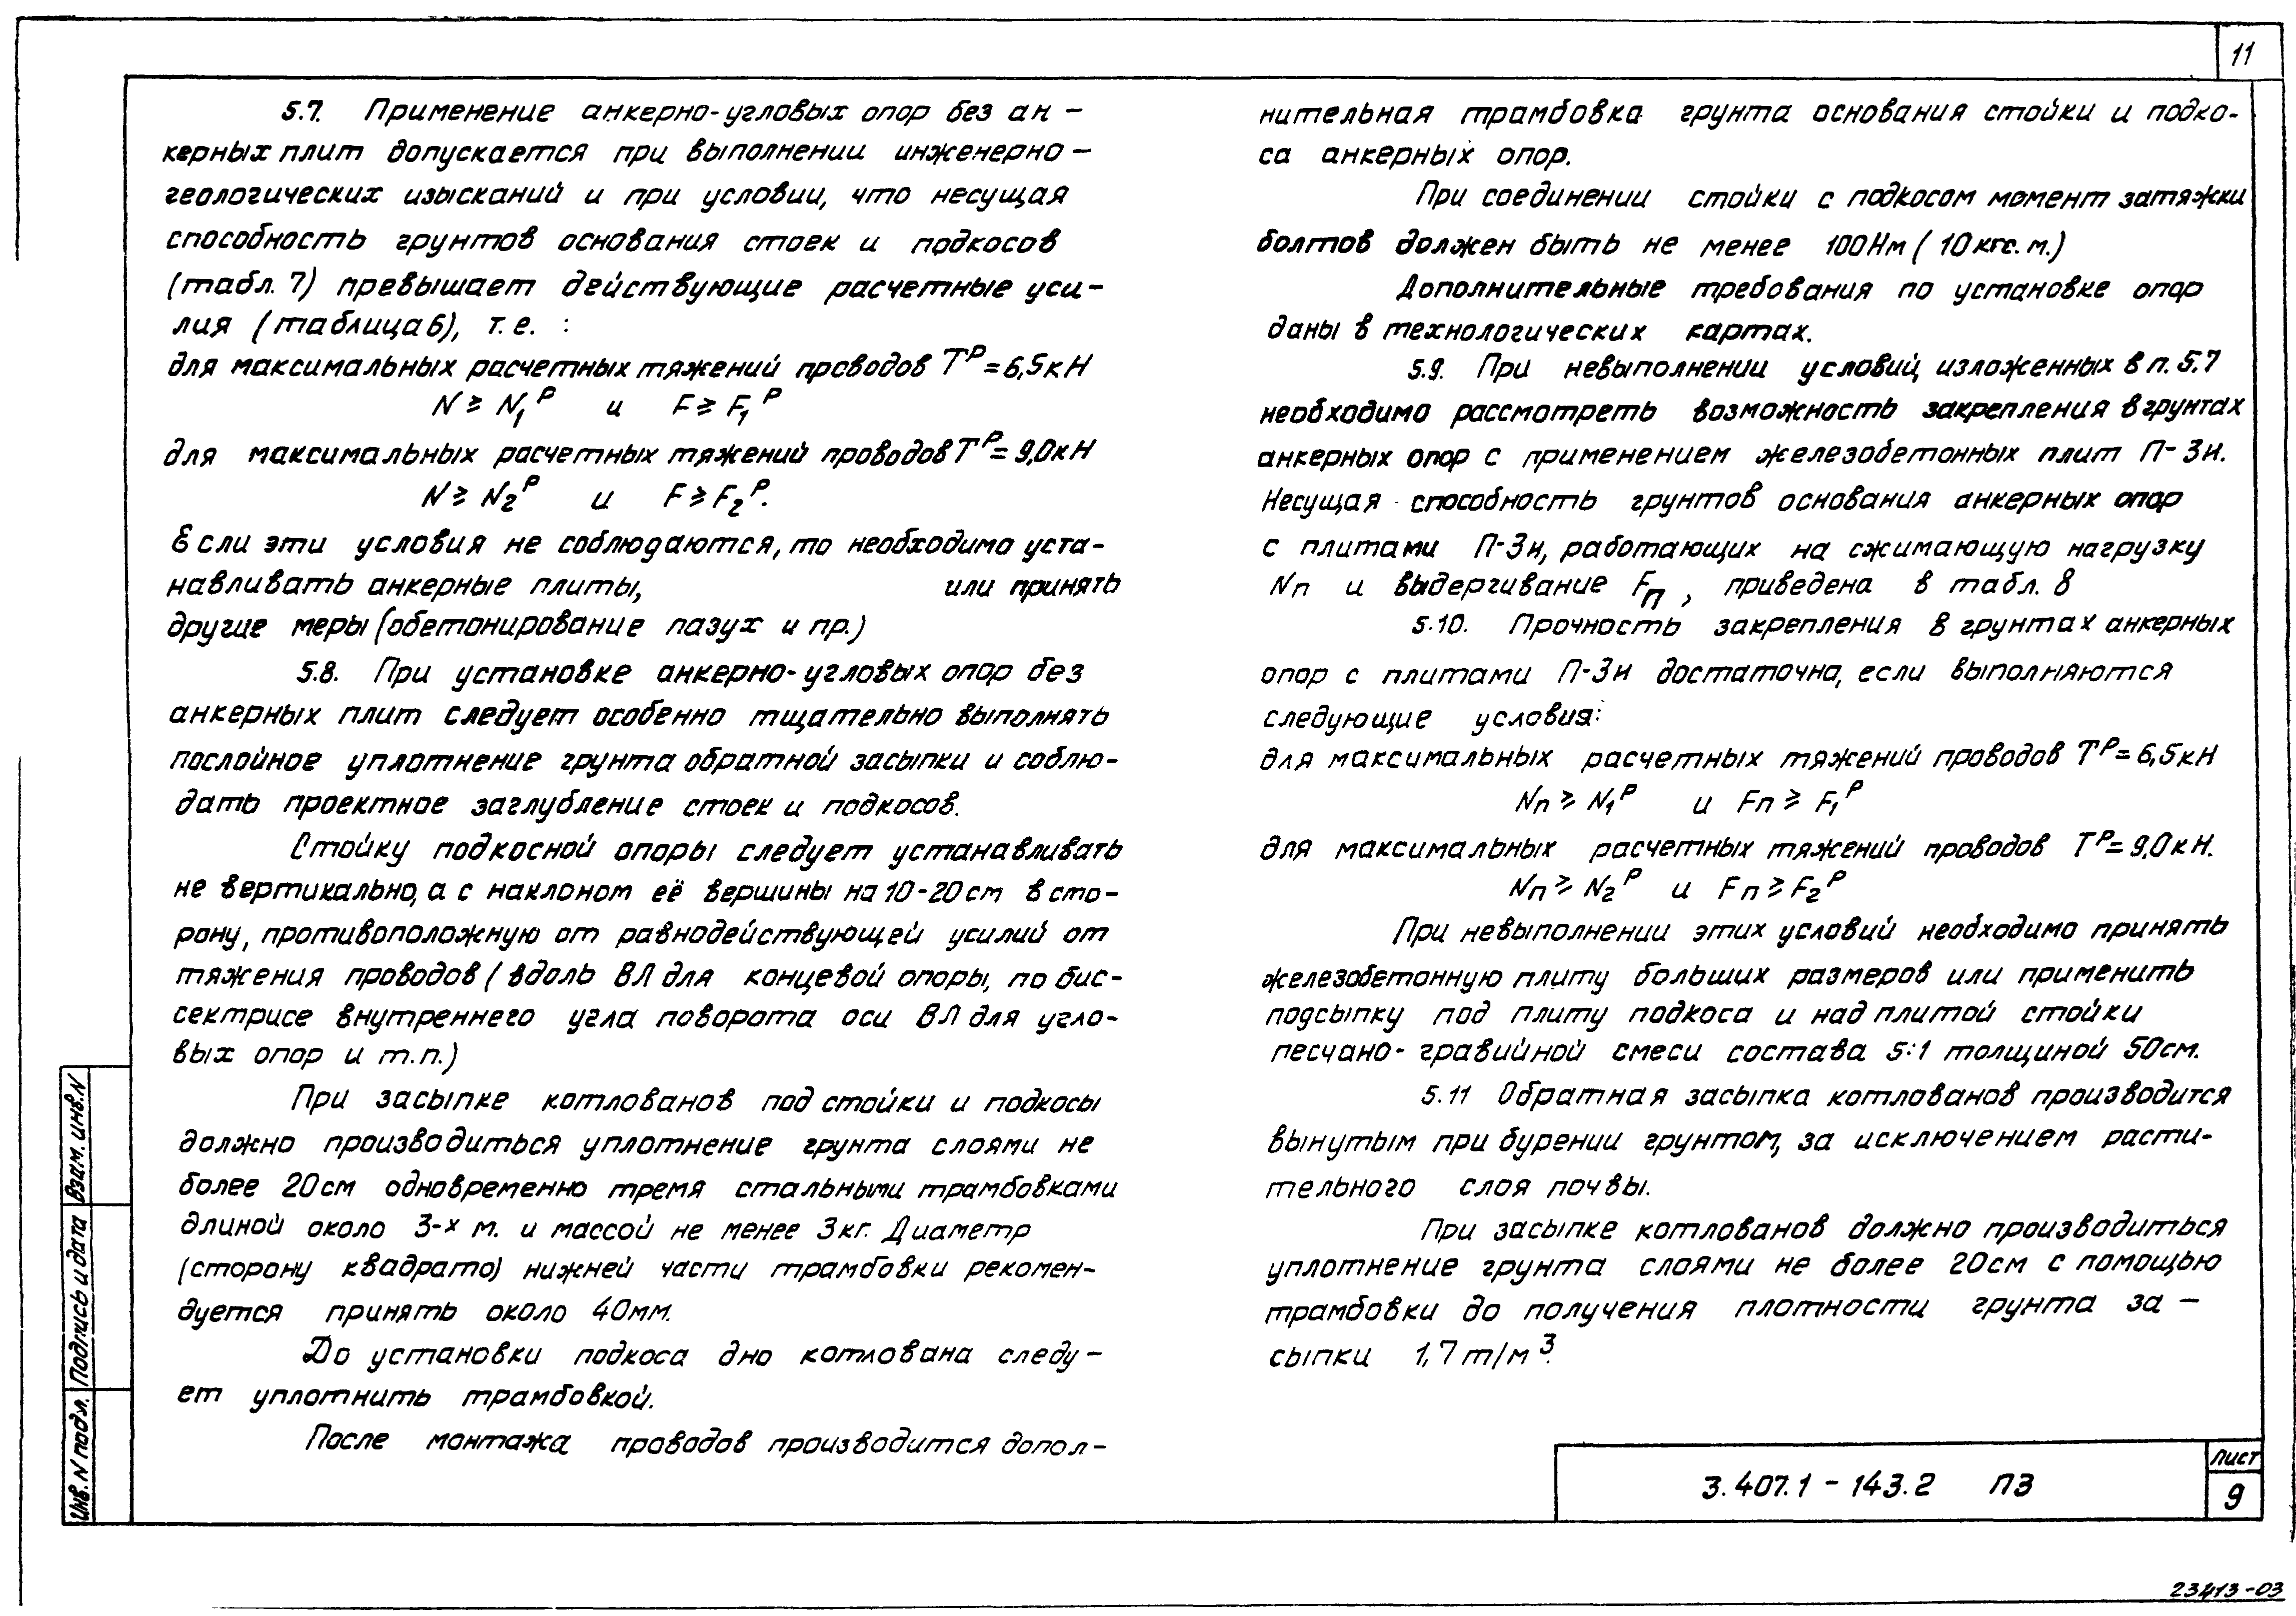 11
5.7. Применение анкерно-угловых опор без ан-
керных плит допускается при выполнении инженерно-
геологических изысканий и при условии, что несущая
способность грунтов основания стоек и подкосов
(табл. 7) превышает действующие расчетные уси-
лия (таблица 6), т.е. :
для максимальных расчетных тяжений проводов Tᴾ = 6,5кН
N ≥ N₁ᴾ и F ≥ F₁ᴾ
для максимальных расчетных тяжений проводов Tᴾ = 9,0кН
N ≥ N₂ᴾ и F ≥ F₂ᴾ.
Если эти условия не соблюдаются, то необходимо уста-
навливать анкерные плиты, или принять
другие меры (обетонирование пазух и пр.)
5.8. При установке анкерно-угловых опор без
анкерных плит следует особенно тщательно выполнять
послойное уплотнение грунта обратной засыпки и соблю-
дать проектное заглубление стоек и подкосов.
Стойку подкосной опоры следует устанавливать
не вертикально, а с наклоном её вершины на 10-20см в сто-
рону, противоположную от равнодействующей усилий от
тяжения проводов (вдоль ВЛ для концевой опоры, по бис-
сектрисе внутреннего угла поворота оси ВЛ для угло-
вых опор и т.п.)
При засыпке котлованов под стойки и подкосы
должно производиться уплотнение грунта слоями не
более 20см одновременно тремя стальными трамбовками
длиной около 3-х м. и массой не менее 3кг. Диаметр
(сторону квадрата) нижней части трамбовки рекомен-
дуется принять около 40мм.
До установки подкоса дно котлована следу-
ет уплотнить трамбовкой.
После монтажа проводов производится допол-
нительная трамбовка грунта основания стойки и подко-
са анкерных опор.
При соединении стойки с подкосом момент затяжки
болтов должен быть не менее 100Нм (10кгс.м.)
Дополнительные требования по установке опор
даны в технологических картах.
5.9. При невыполнении условий, изложенных в п. 5.7
необходимо рассмотреть возможность закрепления в грунтах
анкерных опор с применением железобетонных плит П-3и.
Несущая способность грунтов основания анкерных опор
с плитами П-3и, работающих на сжимающую нагрузку
Nп и выдергивание Fп, приведена в табл. 8
5.10. Прочность закрепления в грунтах анкерных
опор с плитами П-3и достаточна, если выполняются
следующие условия:
для максимальных расчетных тяжений проводов Tᴾ = 6,5кН
Nп ≥ N₁ᴾ и Fп ≥ F₁ᴾ
для максимальных расчетных тяжений проводов Tᴾ = 9,0кН.
Nп ≥ N₂ᴾ и Fп ≥ F₂ᴾ
При невыполнении этих условий необходимо принять
железобетонную плиту больших размеров или применить
подсыпку под плиту подкоса и над плитой стойки
песчано-гравийной смеси состава 5:1 толщиной 50см.
5.11 Обратная засыпка котлованов производится
вынутым при бурении грунтом, за исключением расти-
тельного слоя почвы.
При засыпке котлованов должно производиться
уплотнение грунта слоями не более 20см с помощью
трамбовки до получения плотности грунта за-
сыпки 1,7т/м³.
Взам. инв. N
Подпись и дата
Инв. N подл.
3.407.1-143.2 ПЗ
Лист
9
23413-03